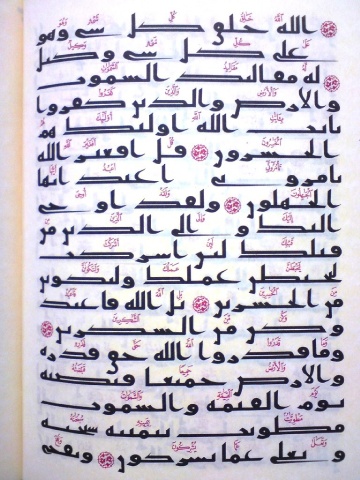 الله خلق كل شى وهو
على كل شى وكيل
له مقاليد السموت
والارض والذين كفروا
بايت الله اولئك هم
الخسرون قل افغير الله
تامرونى اعبد ايها
الجهلون ولقد اوحى
اليك والى الذين من
قبلك لئن اشركت
ليحبطن عملك ولتكونن
من الخسرين بل الله فاعبد
وكن من الشكرين
وما قدروا الله حق قدره
والارض جميعا قبضته
يوم القيمه والسموت
مطويت بيمينه سبحنه
وتعلى عما يشركون ونفخ